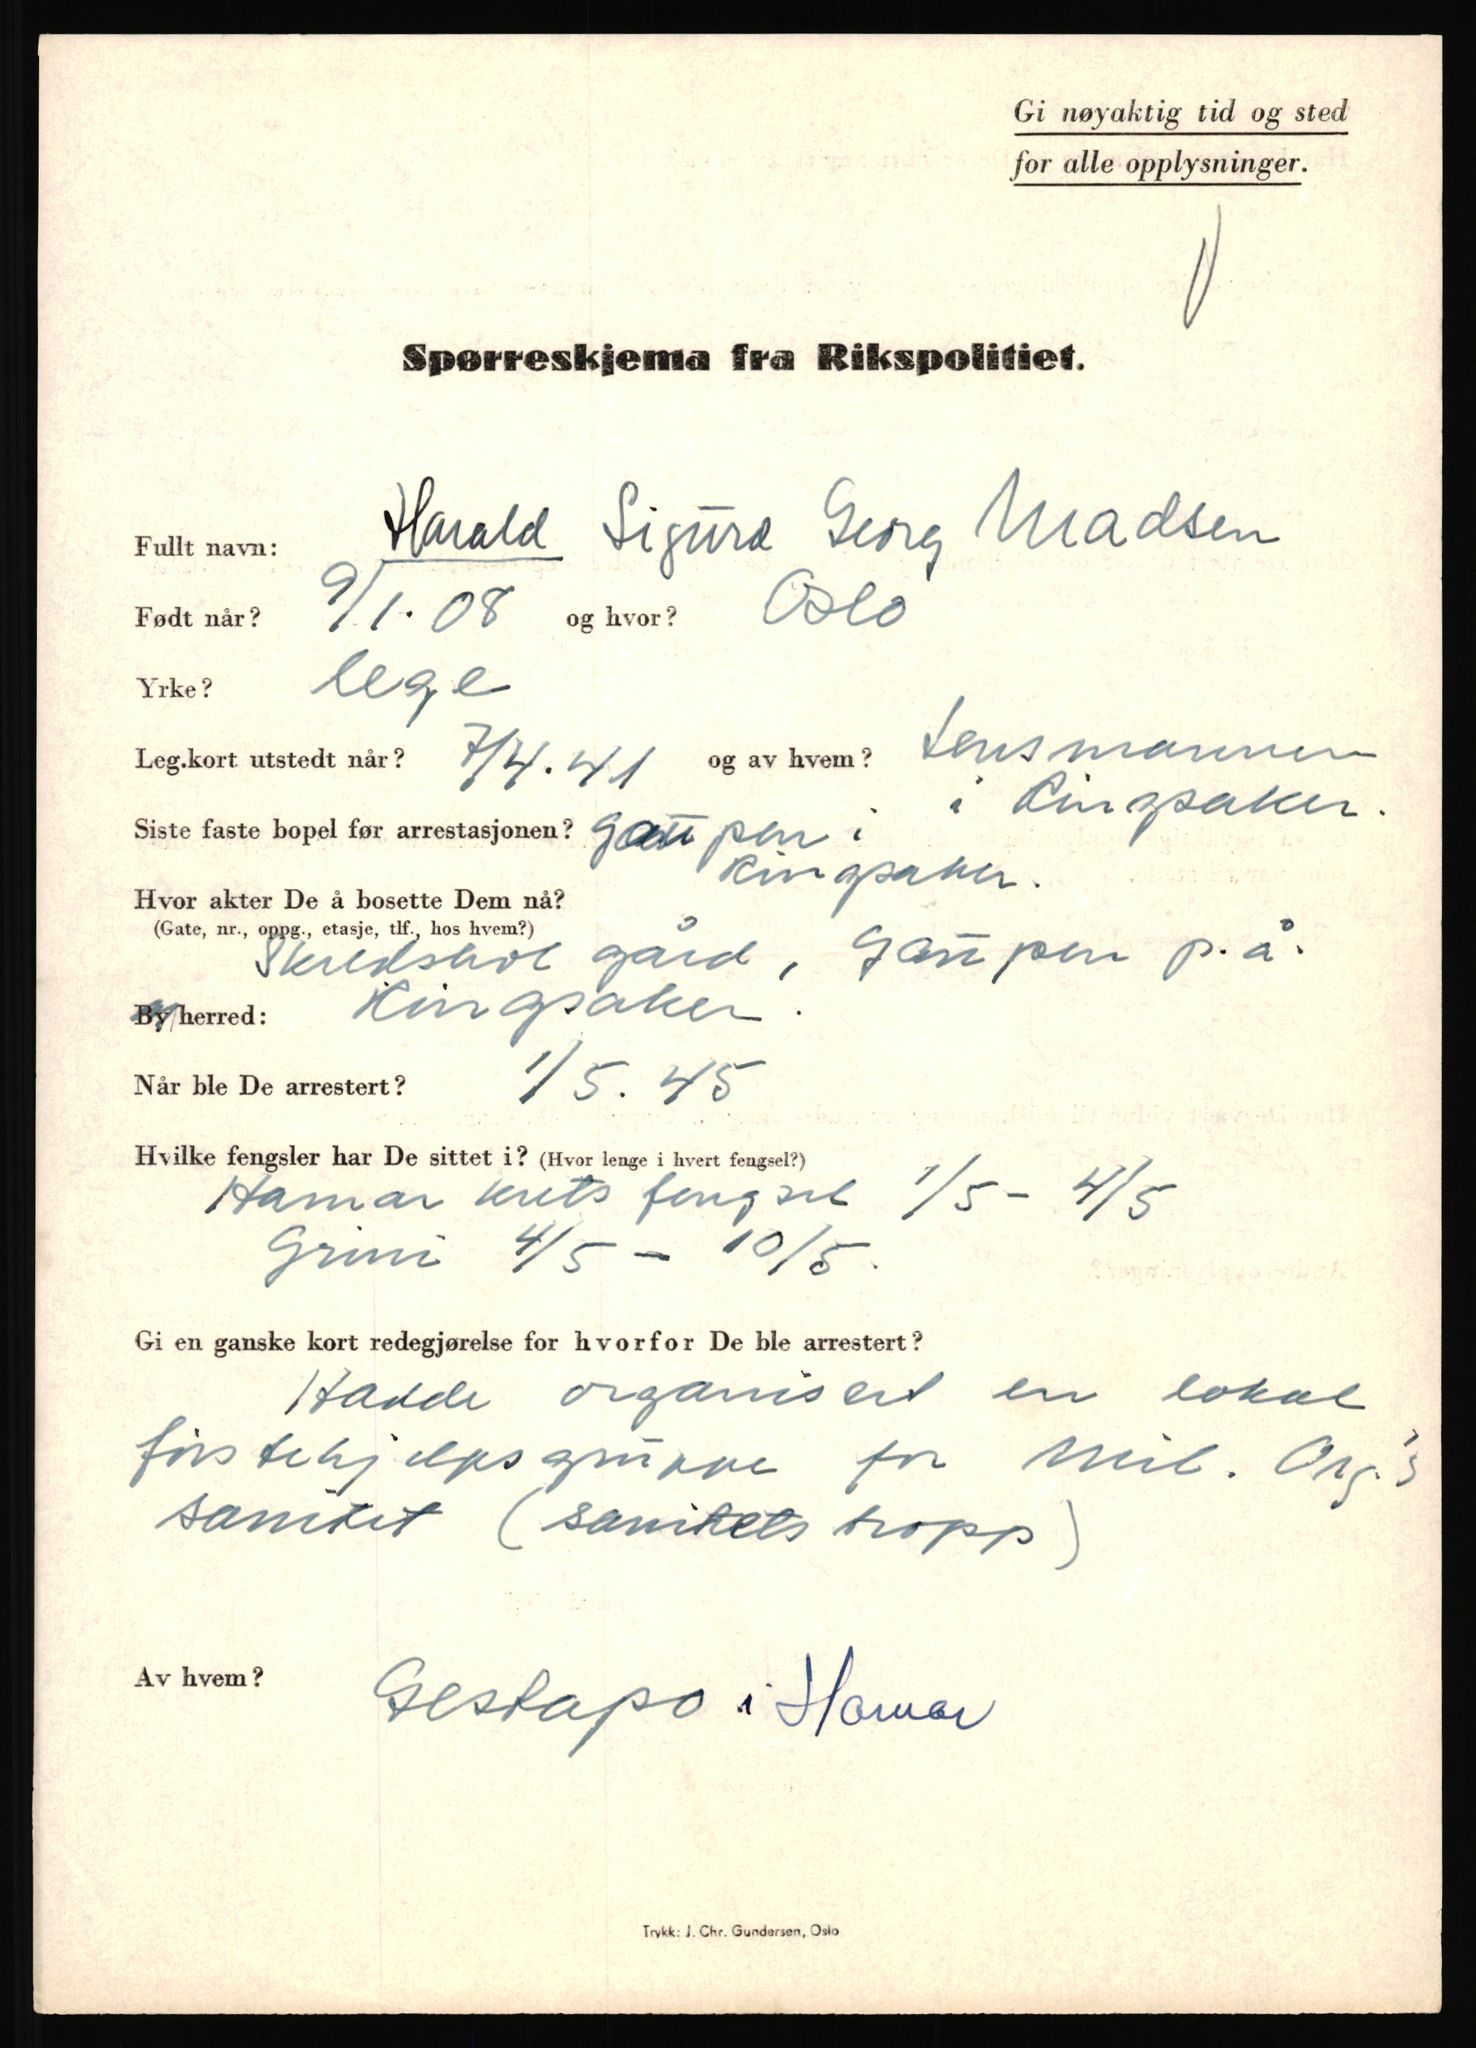 Gi nøyaktig tid og sted
for alle opplysninger.
Spørreskjema fra Rikspolitiet.
Fullt navn: Harald Sigurd Georg Madsen
Født når? 9/1. 08 og hvor? Oslo
Yrke? lege
Leg.kort utstedt når? 7/4. 41 og av hvem? Lensmannen
i Ringsaker.
Siste faste bopel før arrestasjonen? Gaupen i
Ringsaker.
Hvor akter De å bosette Dem nå?
(Gate, nr., oppg., etasje, tlf., hos hvem?)
Skredshol gård, Gaupen p.å.
By/herred: Ringsaker.
Når ble De arrestert? 1/5. 45
Hvilke fengsler har De sittet i? (Hvor lenge i hvert fengsel?)
Hamar krets fengsel 1/5 - 4/5
Grini 4/5 - 10/5.
Gi en ganske kort redegjørelse for hvorfor De ble arrestert?
Hadde organisert en lokal
førstehjelpsgruppe for Mil. Org.'s
sanitet (sanitetstropp)
Av hvem? Gestapo i Hamar
Trykk: J. Chr. Gundersen, Oslo